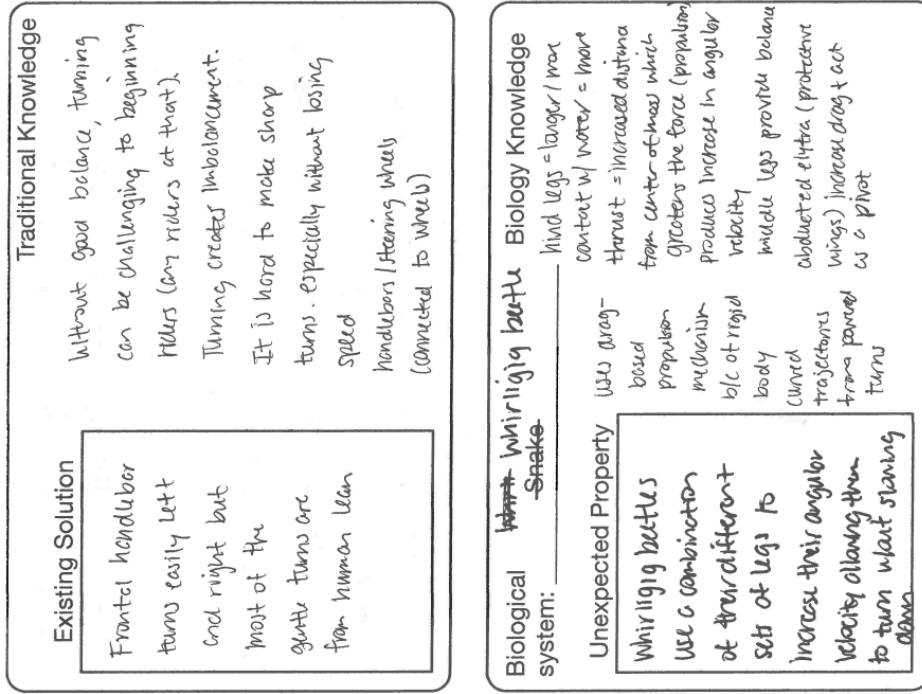 Existing Solution
Frontal handlebar
turns easily left
and right but
most of the
gentle turns are
from human lean
Traditional Knowledge
Without good balance, turning
can be challenging to beginning
riders (any riders at that).
Turning creates imbalancement.
It is hard to make sharp
turns. especially without losing
speed
handlebars / steering wheels
(connected to wheels)
Biological system: Whirligig beetle
Snake
Unexpected Property
Whirligig beetles
use a combination
of their different
sets of legs to
increase their angular
velocity allowing them
to turn w/out slowing
down
uses drag-
based
propulsion
mechanism
b/c of rigid
body
curved
trajectories
powered
turns
Biology Knowledge
hind legs = longer / more
contact w/ water = more
thrust = increased distance
from center of mass which
greatens the force (propulsion)
produces increase in angular
velocity
middle legs provide balance
abducted elytra (protective
wings) increase drag + act
as a pivot